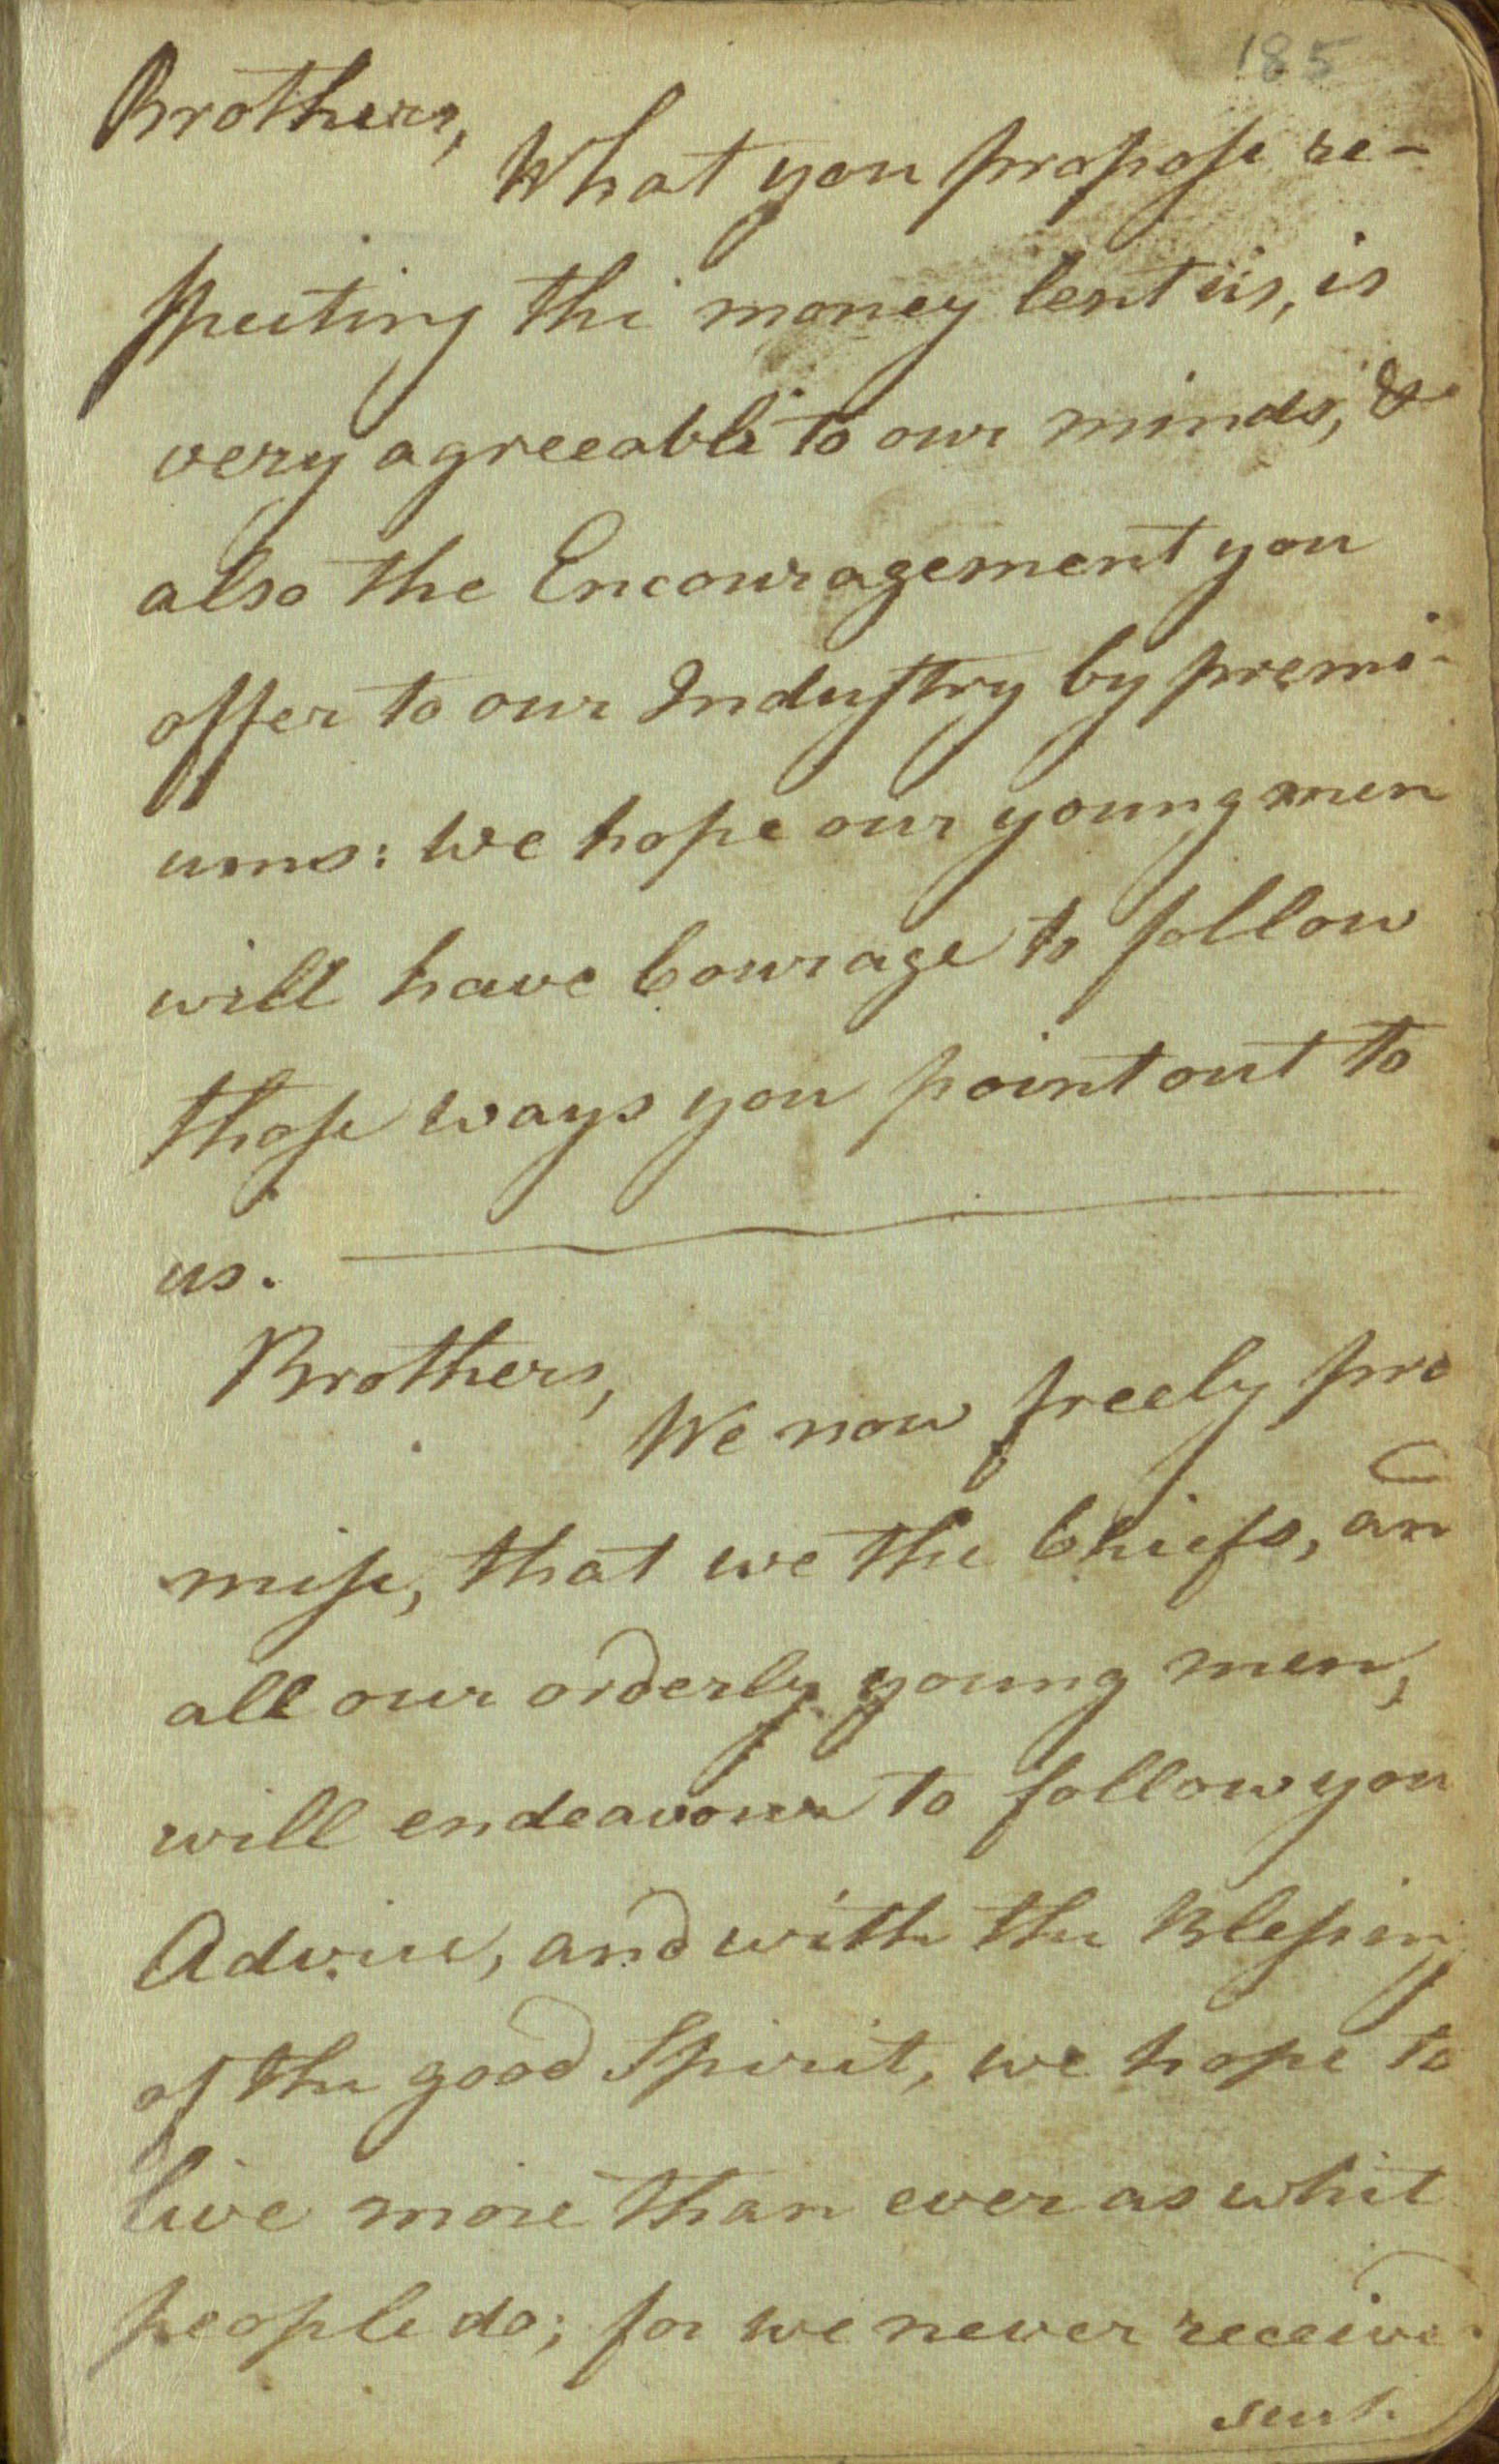 185
Brothers,
What you propose re-
specting the money lent us, is
very agreeable to our minds, &
also the Encouragement you
offer to our Industry by premi-
ums: we hope our young men
will have Courage to follow
those ways you point out to
us.
Brothers,
We now freely pro
mise, that we the Chiefs, and
all our orderly young men,
will endeavour to follow you
Advice, and with the Blessing
of the good Spirit, we hope to
live more than ever as whit
people do; for we never received
such